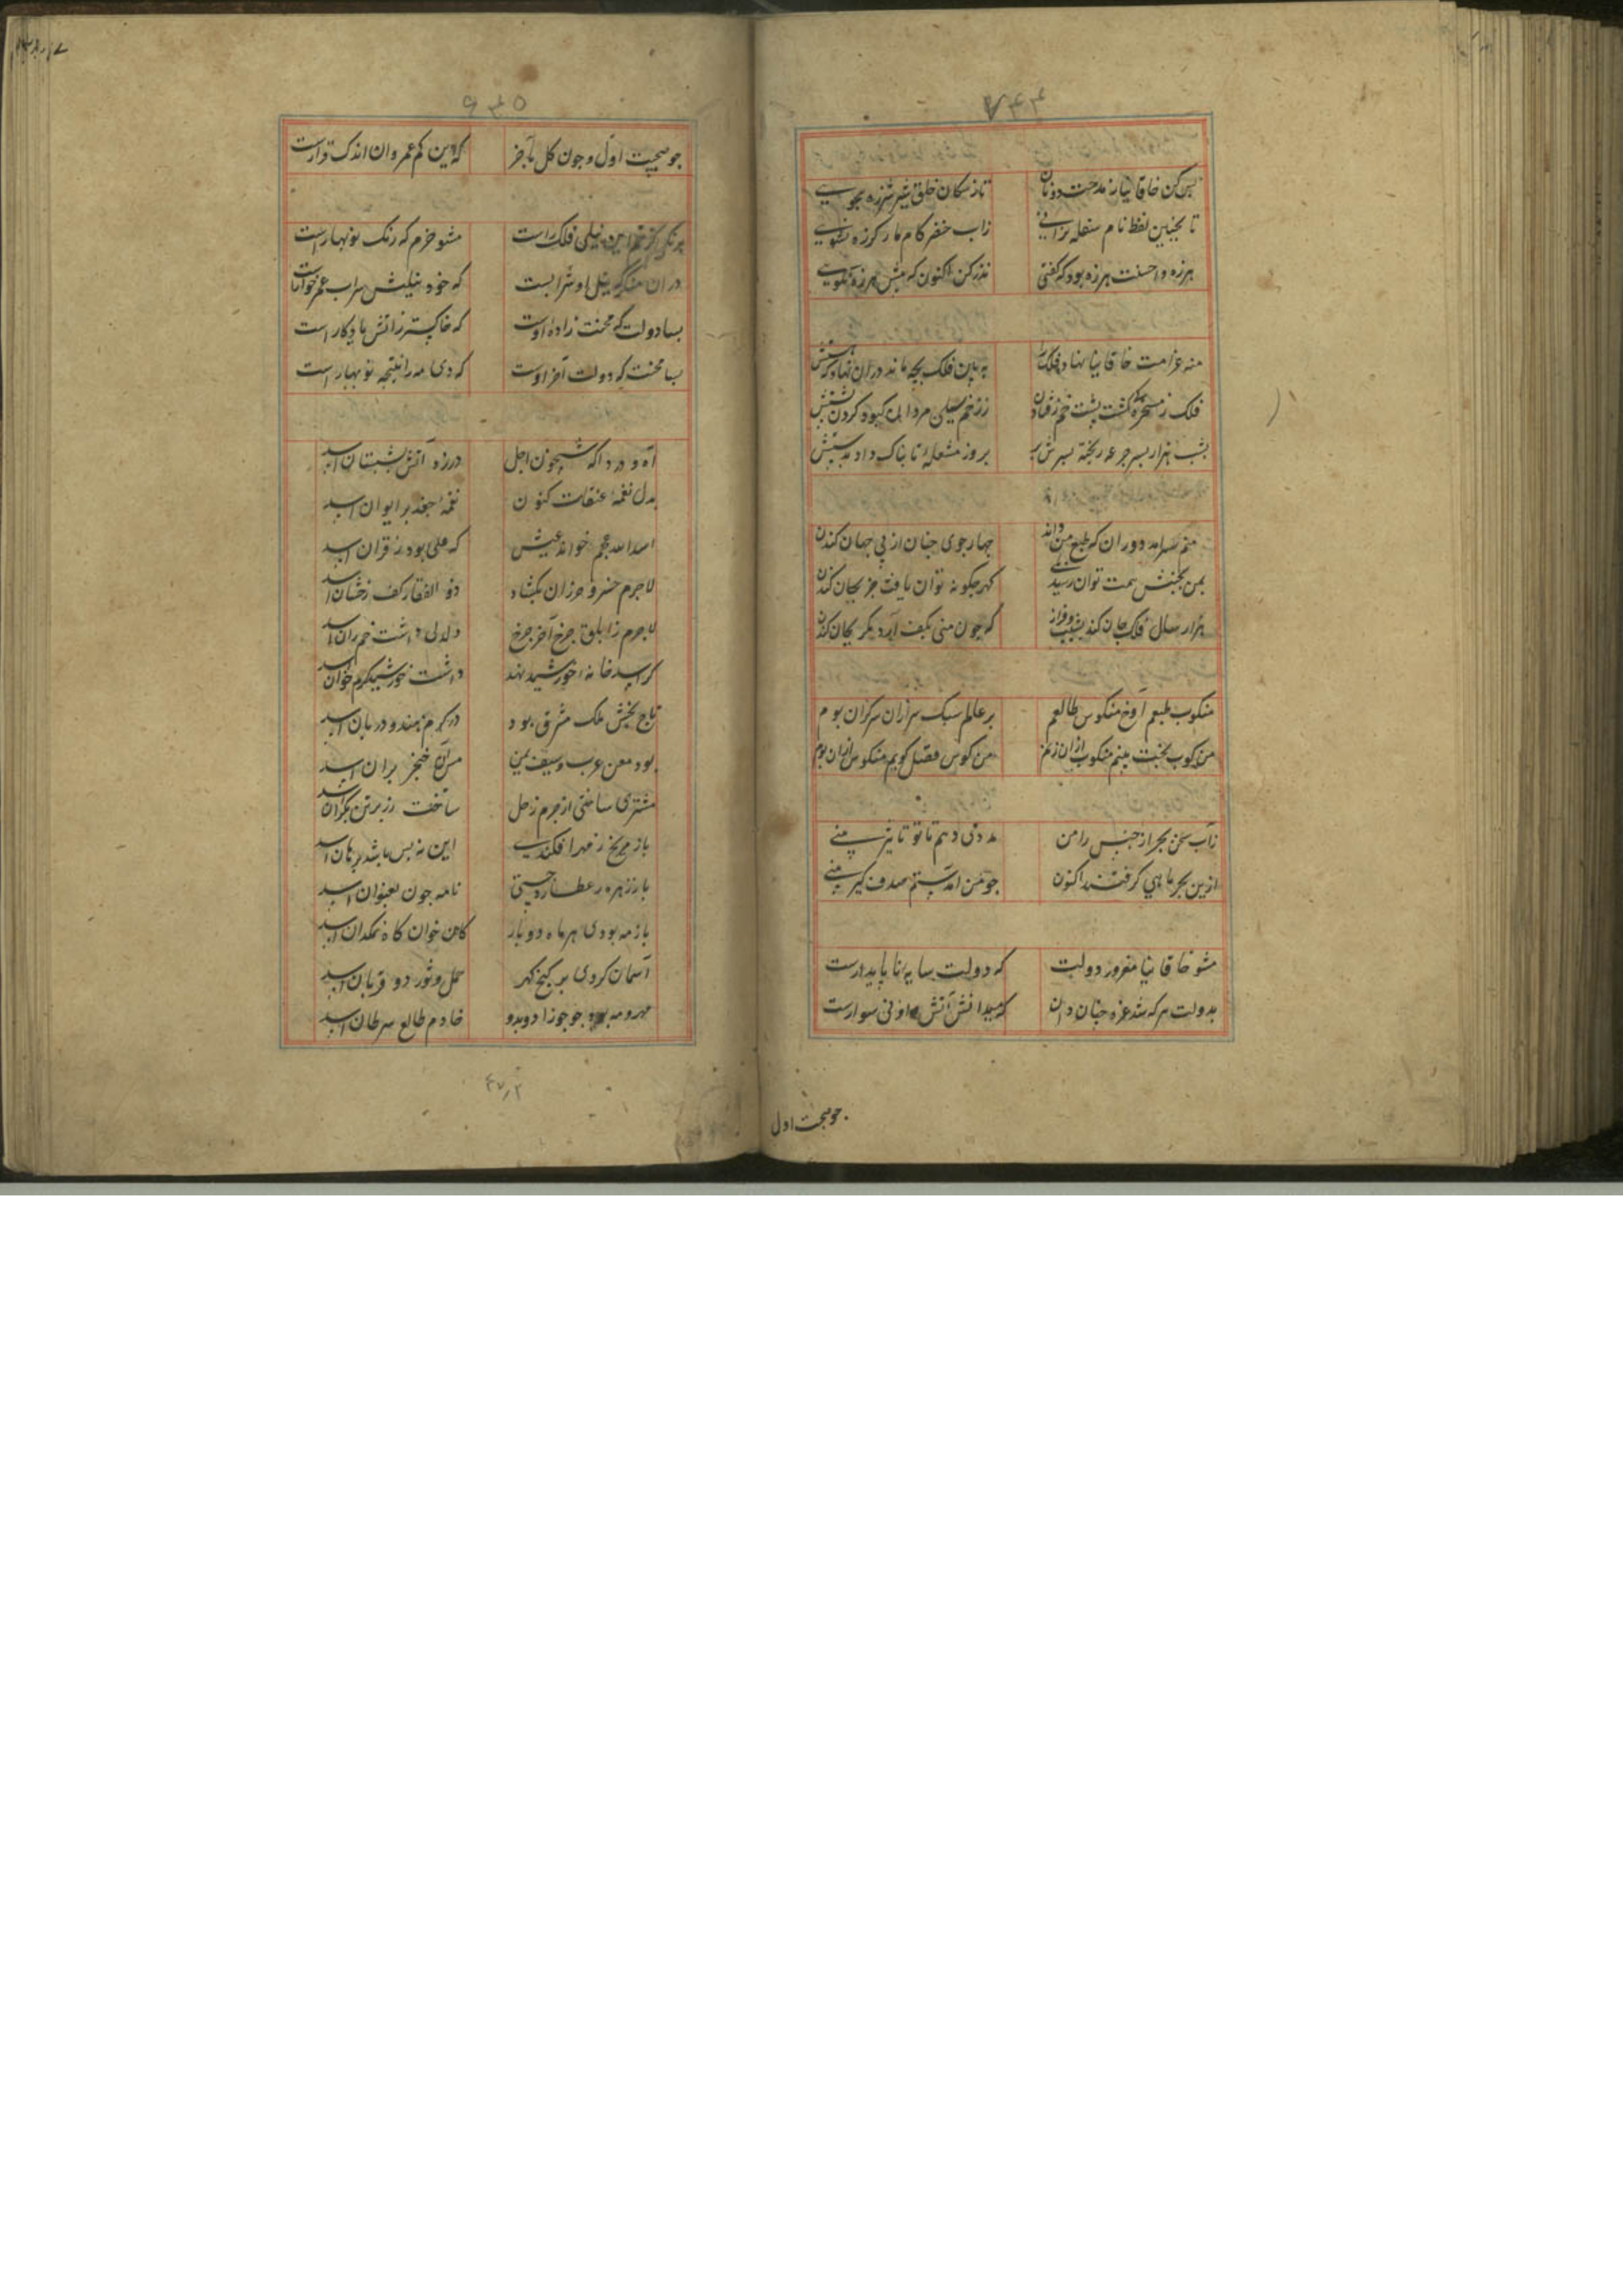 بس کن خاقانیا ز مدحت دونان	تا ز سکان خلق شیر شرزه نجویی
تا بچنین لفظ نام سفله نرانی	زاب خضر کام مار کرزه نشویی
هرزه و احسنت هرزه بود که گفتی	نذر کن اکنون که بیش هرزه نگویی
منه غرامت خاقانیا نهاد فلک را	به بین فلک بچه ماند در ان نهاد
فلک ز مسخره گشت پشت خم ز قفا دان	ز زخم سیلی مردان کبود گردن پشتش
بشب هزار پسر جرعه ریخته بسرش بر	بروز مشعله تابناک داد بدستش
منم سرامد دوران که طبع من داند	چهار جوی جنان از پی جهان کندن
بمن بجنبش همت توان رسید بلی	گهر چگونه توان یافت جز بجان کندن
هزار سال فلک جان کند نشیب و فراز	که چون منی بکف آرد مگر بجان کندن
منکوب طبعم آوخ منکوس طالعم	بر عالم سبک سر ازان سر کران بوم
من کوب بخت بینم منکوب ازان زیم	من کوس فضل کوبم منکوس ازان بوم
زآب سخن بحر ار من	مددی دهم تا تو تا نیز بینی
ازین بحر ماهی گرفتند اکنون	جو من آمدستم صدف گیر بینی
مشو خاقانیا مغرور دولت	که دولت سایه ناپایدارست
بدولت هر که شد غره چنان دان	که میدانش آتش و او نی سوارست
جو صبحست اول
۶۳۵
جو صبحست اول و جون کل بآخر	که این کم عمر و ان اندک قرارست
برنگی کز خم این نیلی فلک راست	مشو خرم که رنگ نوبهارست
در ان منگر که نیل او شرابست	که خود نیلیش سراب عمر خوارست
بسا دولت که محنت زاده اوست	که خاکستر ز آتش یادگار است
بسا محنت که دولت آخر اوست	که دی مه را نتیجه نوبهار است
آه و دردا که شبیخون اجل	در زد آتش بشبستان اسد
بدل نغمه عنقاست کنون	نغمه جغد بر ایوان اسد
اسد الله عجم خواند علیش	که علی بود ز قران اسد
لاجرم خسرو مرزان بگشاد	ذو الفقار کف رخشان اسد
لاجرم ز ابلق چرخ آخر چرخ	دلدلی داشت خم ران اسد
گر اسد خانه خورشید نهند	داشت خورشید کرم خوان اسد
تاج بخش ملک مشرق بود	در کرم هندو دربان اسد
بود معن عرب و سیف یمن	مس آن خنجر بران اسد
مشتری ساختی از جرم زحل	ساخت زر بر تن یکران اسد
باز مریخ ز مهر افکندی	این نه بس باشد برهان اسد
باز زهره ز عطارد جستی	نامه جون بعنوان اسد
باز مه بودی هر ماه دو بار	کاه خوان کاه نمکدان اسد
آسمان کردی بر گنج گهر	حمل و ثور دو قربان اسد
مهر و مه بود جو جوزا دو بدو	خادم طالع سرطان اسد